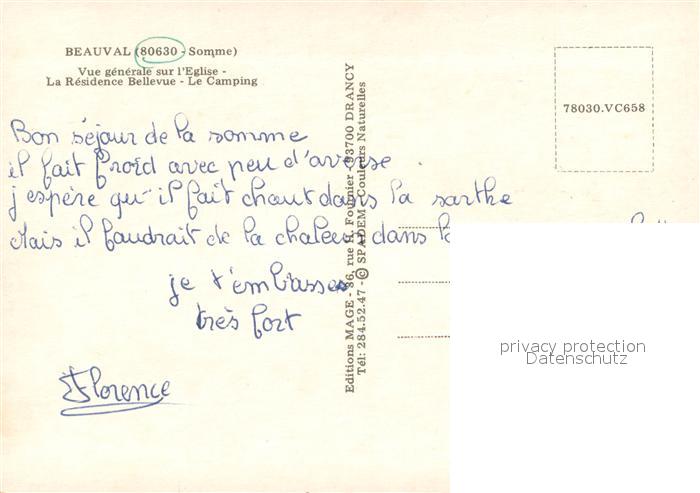 BEAUVAL (80630 - Somme)
Vue générale sur l'Eglise -
La Résidence Bellevue - Le Camping
78030.VC658
Bon séjour de la somme
il fait froid avec peu d'averse.
j'espère qu'il fait chaut dans la sarthe
Mais il faudrait de la chaleur dans
je t'embrasses
très fort
Florence
Editions MAGE - 36, rue H. Fournier - 93700 DRANCY
Tél: 284.52.47 - © SPADEM - Couleurs Naturelles
privacy protection
Datenschutz